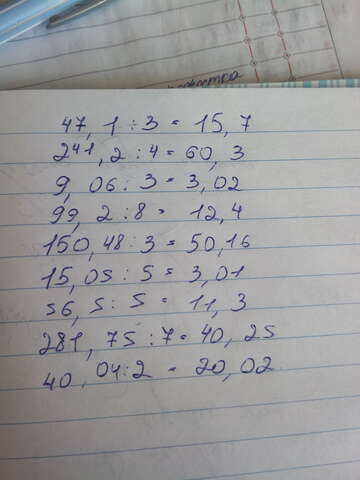 47,1 ÷ 3 = 15,7
241,2 : 4 = 60,3
9,06 : 3 = 3,02
99,2 : 8 = 12,4
150,48 : 3 = 50,16
15,05 : 5 = 3,01
56,5 : 5 = 11,3
281,75 : 7 = 40,25
40,04 : 2 = 20,02